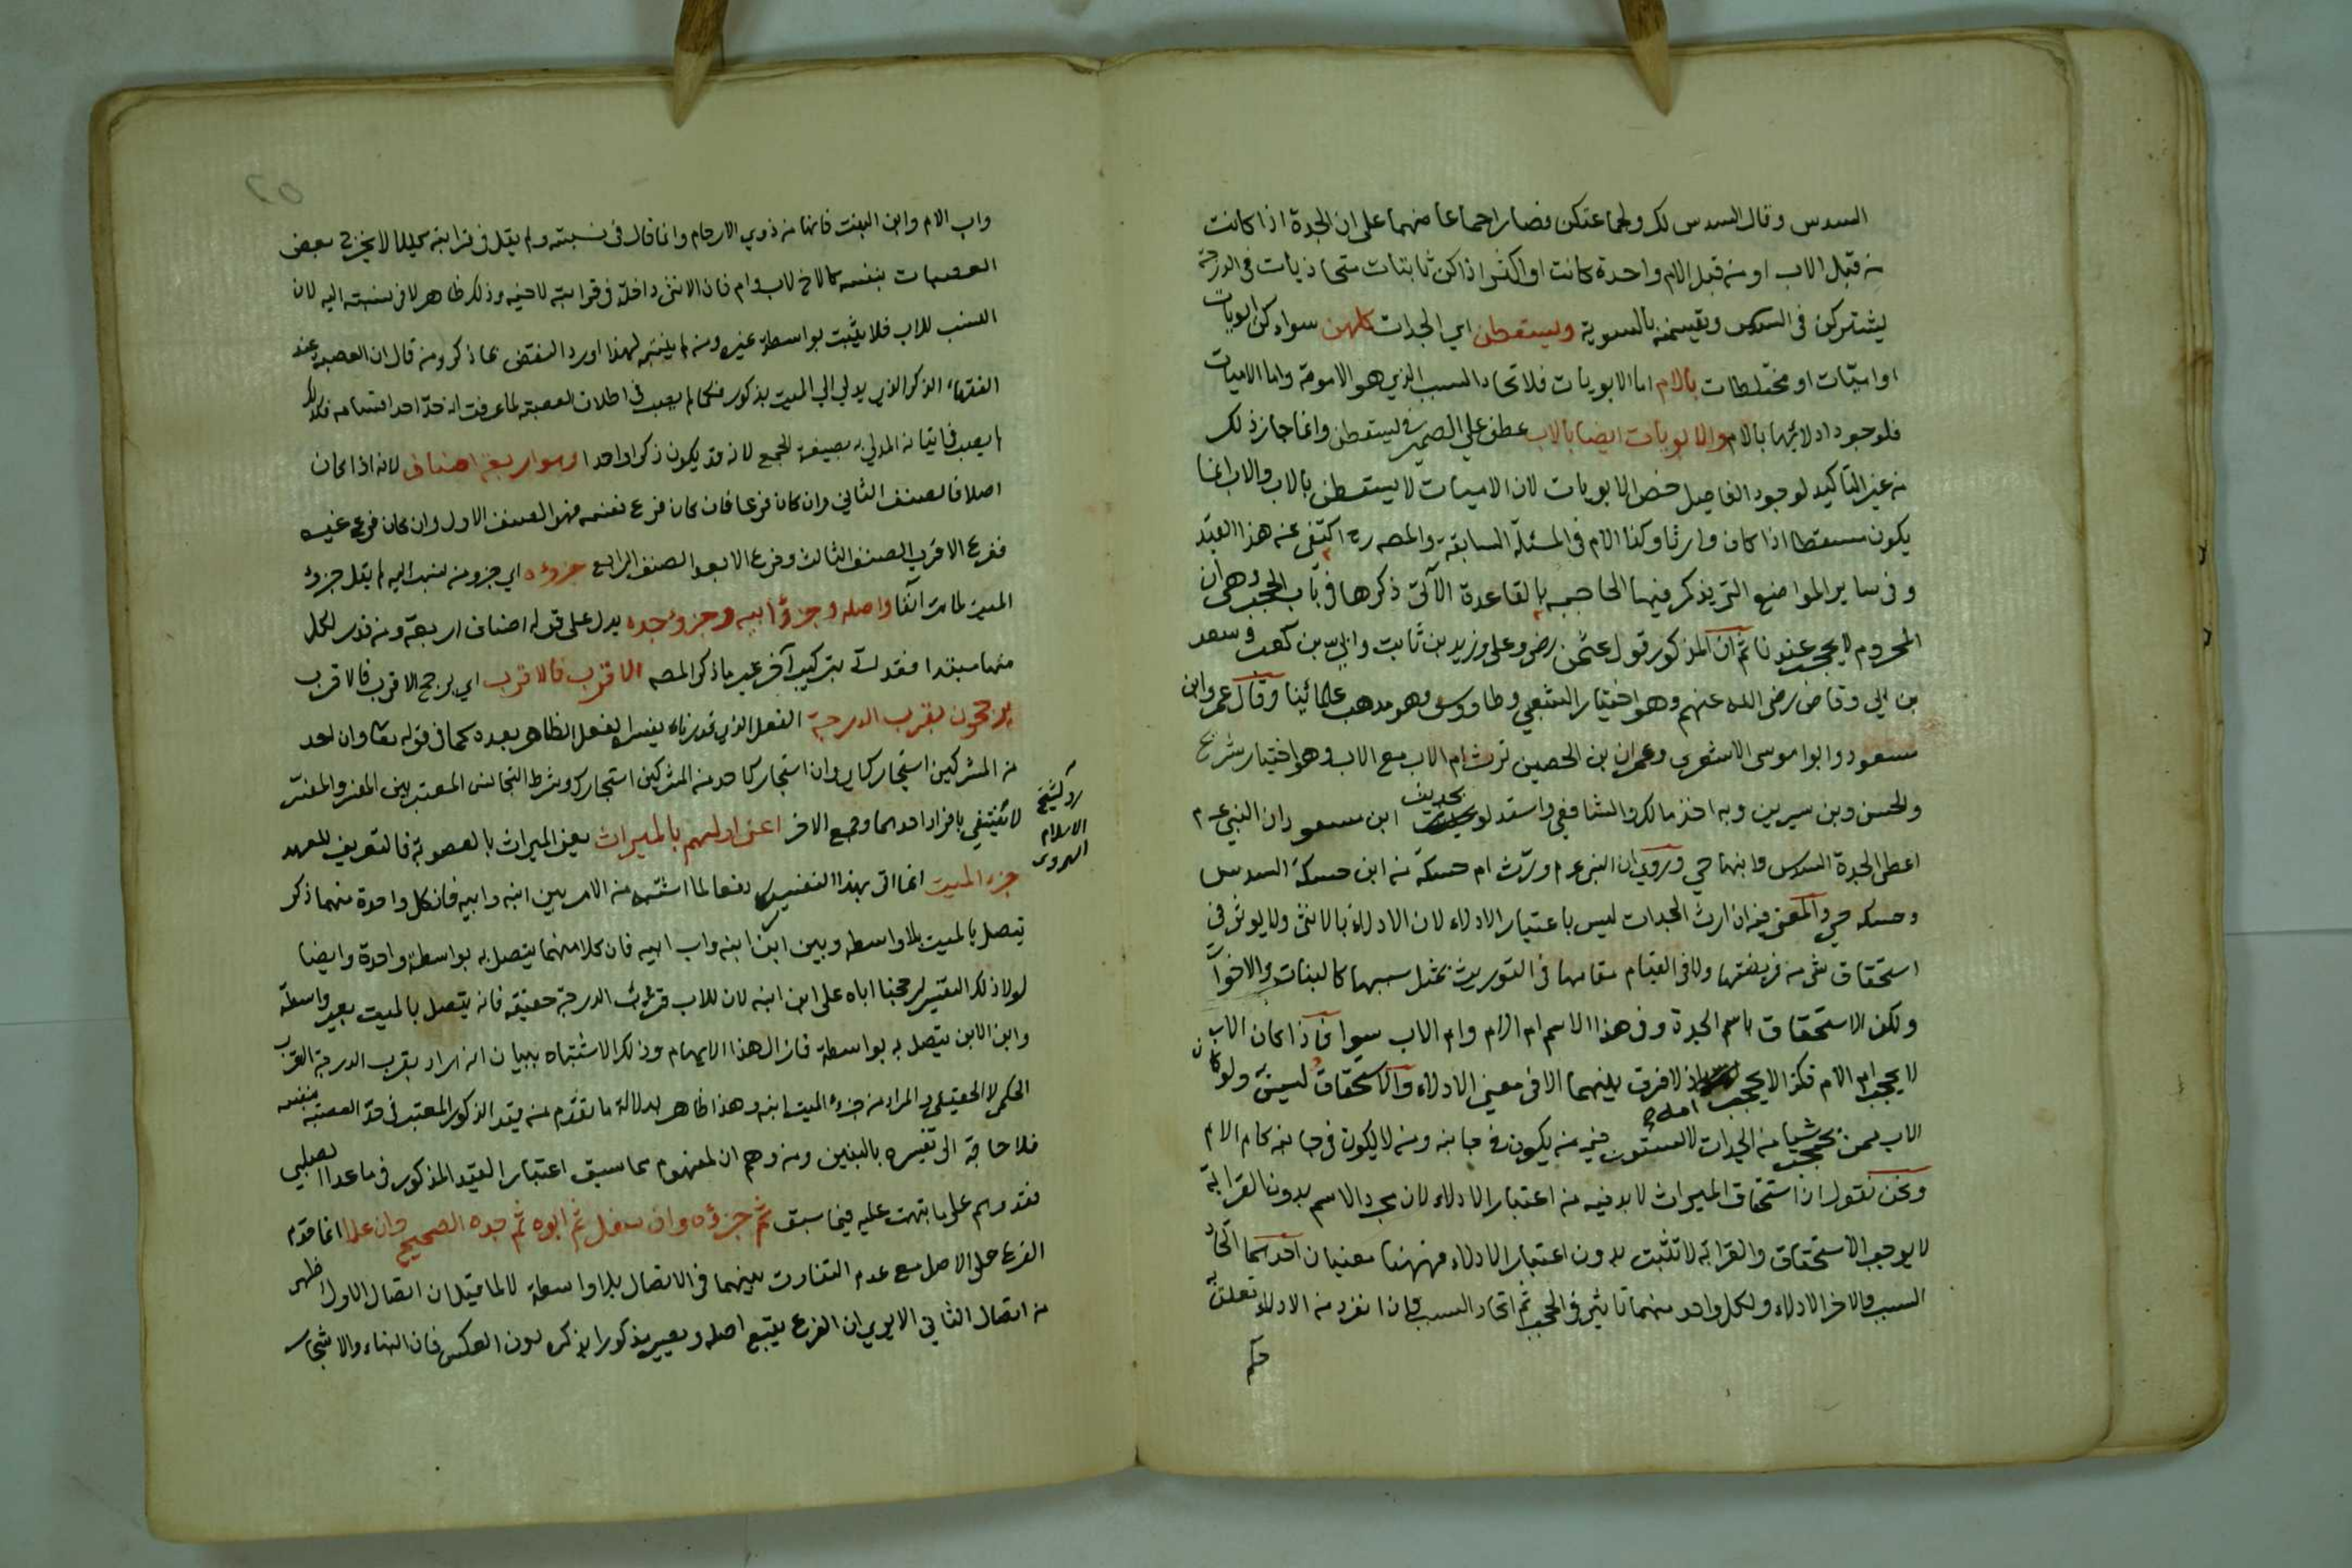 السدس وقال السدس لك ولجماعتكن فصار اجماعا منهما على ان الجدة اذا كانت
من قبل الاب او من قبل الام واحدة كانت او اكثر اذا كن ثابتات متحاذيات في الدرجة
يشتركن في السدس ويقسمنه بالسوية ويسقطن اي الجدات كلهن سواء كن ابويات
او اميات او مختلطات بالام اما الابويات فلاتحاد السبب الذي هو الامومة واما الاميات
فلوجود ادلائها بالام والابويات ايضا بالاب عطف على الضمير في يسقطن وانما جاز ذلك
من غير التأكيد لوجود الفاصل خص الابويات لان الاميات لا يسقطن بالاب والاب انما
يكون مسقطا اذا كان وارثا وكذا الام في المسئلة السابقة والمصه رح اكتفى عنه هذا القيد
وفي ساير المواضع التي يذكر فيها الحاجب بالقاعدة الآتى ذكرها في باب الحجب وهي ان
المحروم لا يحجب عندنا ثم ان المذكور قول عثمن رض وعلى وزيد بن ثابت وابي بن كعب وسعد
بن ابي وقاص رضى الله عنهم وهو اختيار الشعبي وطاووس وهو مذهب علمائينا وقال عمر وابن
مسعود وابوا موسى الاشعرى وعمران بن الحصين ترث ام الاب مع الاب وهو اختيار شريح
والحسن وبن سيرين وبه اخذ مالك والشافعي واستدلو بحديث ابن مسعود ان النبي عم
اعطى الجدة السدس وابنها حي وروي ان النبي عم ورث ام حسكة من ابن حسكة السدس
وحسكه حي والمعنى فيه ان ارث الجدات ليس باعتبار الادلاء لان الادلاء بالانثى ولا يوثر في
استحقاق شي من فريضتها ولا في القيام مقامها في التوريث بمثل سببها كالبنات والاخوات
ولكن الاستحقاق باسم الجدة وفي هذا الاسم ام الام وام الاب سواء فاذا كان الاب
لا يحجب ام الام فكذا لا يحجب امه اذ لا فرق بينهما الا في معنى الادلاء والاستحقاق ليس به ولو كان
الاب ممن يحجب شيا من الجدات لاستوت فيه من يكون في جانبه ومن لا يكون في جانبه كام الام
ونحن نقول ان استحقاق الميراث لا بد فيه من اعتبار الادلاء لان مجرد الاسم بدون القرابة
لا يوجب الاستحقاق والقرابة لا تثبت بدون اعتبار الادلاء فههنا معنيان احدهما اتحاد
السبب والاخر الادلاء ولكل واحد منهما تاثير في الحجب ثم اتحاد السبب اذا انفرد من الادلاء تعلق به
حكم
واب الام وابن البنت فانهما من ذوي الارحام وانما قال في نسبته ولم يقل في قرابته كيلا لا يخرج بعض
العصبات بنفسه كالاخ لاب وام فان الانثى داخلة في قرابته لاخيه وذلك ظاهر لا في نسبته اليه لان
النسب للاب فلا يثبت بواسطة غيره ومن لم يتنبه لهذا اورد النقض بما ذكر ومن قال ان العصبة عند
الفقهاء الذكر الذي يدلي الي الميت بذكور فكما لم يصب في اطلاق العصبة لما عرفت انه حد احد اقسامه فكذلك
لم يصب في اتيانه المدلي به بصيغة الجمع لانه قد يكون ذكرا واحدا وهو اربعة اصناف لانه اذا كان
اصلا فالصنف الثاني وان كان فرعا فان كان فرع نفسه فهو الصنف الاول وان كان فرع غيره
ففرع الاقرب الصنف الثالث وفرع الابعد الصنف الرابع جزؤه اي جزو من نسب اليه لم يقل جزؤ
الميت لما مر آنفا واصله وجزؤ ابيه وجزؤ جده يدل على قوله اصناف اربعة ومن قدر لكل
منها مبتدا فقد اتى بتركيب آخر غير ما ذكر المصه الاقرب فالاقرب اي يرجح الاقرب فالاقرب
يرجحون بقرب الدرجة الفعل الذي قدرناه يفسره الفعل الظاهر بعده كما في قوله تعا وان احد
من المشركين استجارك اي وان استجارك احد من المشركين استجارك وشرط التجانس المعتبر بين المفسر والمفسر
لا ينتفي بافراد احدهما وجمع الاخر اعنى اولهم بالميراث يعني الميراث بالعصوبة فالتعريف للعهد
رد لشيخ
الاسلام
الهروى
جزء الميت انما اتى بهذا التفسير دفعا لما اشتبه من الامر بين ابنه وابيه فان كل واحدة منهما ذكر
يتصل بالميت بلا واسطه وبين ابن ابنه واب ابيه فان كلا منهما يتصل به بواسطة واحدة وايضا
لولا ذلك التفسير لرجحنا اباه على ابن ابنه لان للاب قرب الدرجة حقيقه فانه يتصل بالميت بغير واسطة
وابن الابن يتصل به بواسطة فازال هذا الايهام وذلك الاشتباه ببيان انه اراد بقرب الدرجة القرب
الحكمي لا الحقيقي والمراد من جزء الميت ابنه وهذا ظاهر بدلالة ما تقدم من قيد الذكور المعتبر في حد العصبة بنفسه
فلا حاجة الى تفسيره بالبنين ومن وهم ان المفهوم مما سبق اعتبار القيد المذكور في ماعدا الصلبي
فقد وهم على ما نبهت عليه فيما سبق ثم جزؤه وان سفل ثم ابوه ثم جده الصحيح وان علا انما قدم
الفرع على الاصل مع عدم التفاوت بينهما في الاتصال بلا واسطة لا لما قيل ان اتصال الاول اظهر
من اتصال الثاني الا يرى ان الفرع يتبع اصله ويصير مذكورا بذكره دون العكس فان البناء والاشجار